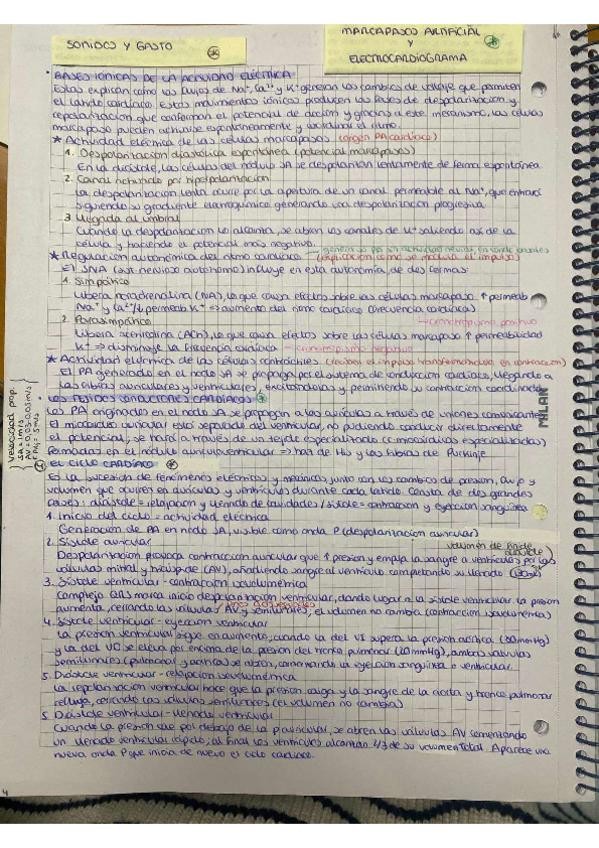 SONIDOS Y GASTO
MARCAPASO ARTIFICIAL
Y
ELECTROCARDIOGRAMA
BASES IONICAS DE LA ACTIVIDAD ELÉCTRICA
Estas explican como los flujos de Na⁺, Ca²⁺ y K⁺ generan los cambios de voltaje que permiten
el latido cardíaco. Estos movimientos iónicos producen las fases de despolarización y
repolarización que conforman el potencial de acción y gracias a este mecanismo, las células
marcapaso pueden activarse espontáneamente y coordinar el ritmo.
* Actividad eléctrica de las células marcapasos (origen PA cardíaco)
1. Despolarización diastólica espontánea (potencial marcapasos)
En la diástole, las células del nódulo SA se despolarizan lentamente de forma espontánea.
2. Canal activado por hiperpolarización
La despolarización lenta ocurre por la apertura de un canal permeable al Na⁺, que entrará
siguiendo su gradiente electroquímico generando una despolarización progresiva.
3 Llegada al umbral
Cuando la despolarización lo alcanza, se abren los canales de K⁺ saliendo así de la
célula y haciendo el potencial más negativo.
* Regulación autonómica del ritmo cardíaco (explicación como se modula el impulso)
El SNA (sist. nervioso autónomo) influye en esta autonomía, de dos formas:
1. Simpático
Libera noradrenalina (NA), lo que causa efectos sobre las células marcapaso ↑ permeab
Na⁺ y Ca²⁺/↓ permeab K⁺ ⇒ aumento del ritmo cardíaco (frecuencia cardíaca)
2. Parasimpático → cronotropismo positivo
Libera acetilcolina (ACh), lo que causa efectos sobre las células marcapaso ↑ permeabilidad
K⁺ ⇒ disminuye la frecuencia cardíaca → cronotropismo negativo
* Actividad eléctrica de las células contráctiles (reciben el impulso transformándolo en contracción)
El PA generado en el nodo SA se propaga por el sistema de conducción cardíaco, llegando a
las fibras auriculares y ventriculares, excitándolas y permitiendo su contracción coordinada
LOS TEJIDOS CONDUCTORES CARDÍACOS
Los PA originados en el nodo SA se propagan a las aurículas a través de uniones comunicantes
El miocardio auricular está separado del ventricular, no pudiendo conducir directamente
el potencial, se hará a través de un tejido especializado (cel miocárdicas especializadas)
Formadas en el nódulo auriculoventricular ⇒ haz de His y las fibras de Purkinje
Velocidad prop.
EL CICLO CARDÍACO
Es la sucesión de fenómenos eléctricos y mecánicos junto con los cambios de presión, flujo y
volumen que ocurren en aurículas y ventrículos durante cada latido. Consta de dos grandes
fases: diástole = relajación y llenado de cavidades / sístole = contracción y eyección sanguínea
1. Inicio del ciclo = actividad eléctrica
Generación de PA en nodo SA, visible como onda P (despolarización auricular)
2. Sístole auricular
Despolarización provoca contracción auricular que ↑ presión y empuja la sangre a ventrículos por las
válvulas mitral y tricúspide (AV), añadiendo sangre al ventrículo completando su llenado
3. Sístole ventricular - contracción isovolumétrica
Complejo QRS marca inicio despolarización ventricular, dando lugar a la sístole ventricular. La presión
aumenta, cerrando las válvulas AV y semilunares, el volumen no cambia (contracción isovolumétrica)
4. Sístole ventricular - eyección ventricular
La presión ventricular sigue en aumento, cuando la del VI supera la presión aórtica (80mmHg)
y la del VD se eleva por encima de la presión del tronco pulmonar (10mmHg), ambas válvulas
semilunares (pulmonar y aórtica) se abren, comenzando la eyección sanguínea o ventricular.
5. Diástole ventricular - relajación isovolumétrica
La repolarización ventricular hace que la presión caiga y la sangre de la aorta y tronco pulmonar
refluye, cerrando las válvulas semilunares (el volumen no cambia)
5. Diástole ventricular - llenado ventricular
Cuando la presión cae por debajo de la P auricular, se abren las válvulas AV comenzando
un llenado ventricular rápido; al final los ventrículos alcanzan 2/3 de su volumen total. Aparece una
nueva onda P que inicia de nuevo el ciclo cardíaco.
MILAN
4